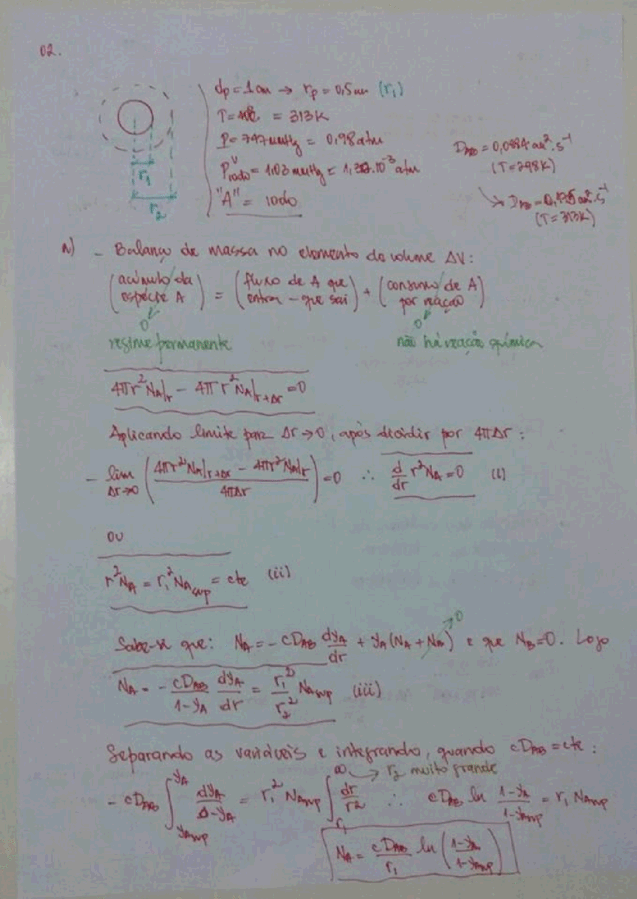 02.
dp = 1 cm → rp = 0,5 cm (r₁)
= 313K
P = 747 mmHg = 0,98 atm
P iodo = 1,03 mmHg = 10⁻³ atm
"A" = iodo
r₁
r₂
D_AB = 0,0884 cm².s⁻¹
(T=298K)
(T=313K)
a) - Balanço de massa no elemento de volume ΔV:
(acúmulo da espécie A) = (fluxo de A que entra - que sai) + (consumo de A por reação)
0 0
regime permanente não há reação química
4πr²N_A|r - 4πr²N_A|r+Δr = 0
Aplicando limite para Δr→0, após dividir por 4πΔr:
- lim Δr→0 (4πr²N_A|r+Δr - 4πr²N_A|r / 4πΔr) = 0 ∴ d/dr r²N_A = 0 (i)
ou
r²N_A = r₁²N_Asup = cte (ii)
Sabe-se que: N_A = -cD_AB dy_A/dr + y_A(N_A + N_B) 0 e que N_B = 0. Logo
N_A = - cD_AB/1-y_A dy_A/dr = r₁²/r² N_Asup (iii)
Separando as variáveis e integrando, quando cD_AB = cte:
∞ → r₂ muito grande
- cD_AB ∫ y_Asup y_A dy_A/1-y_A = r₁² N_Asup ∫ r₁ dr/r² ∴ cD_AB ln 1-y_A/1-y_Asup = r₁ N_Asup
N_A = cD_AB/r₁ ln (1-y_A/1-y_Asup)